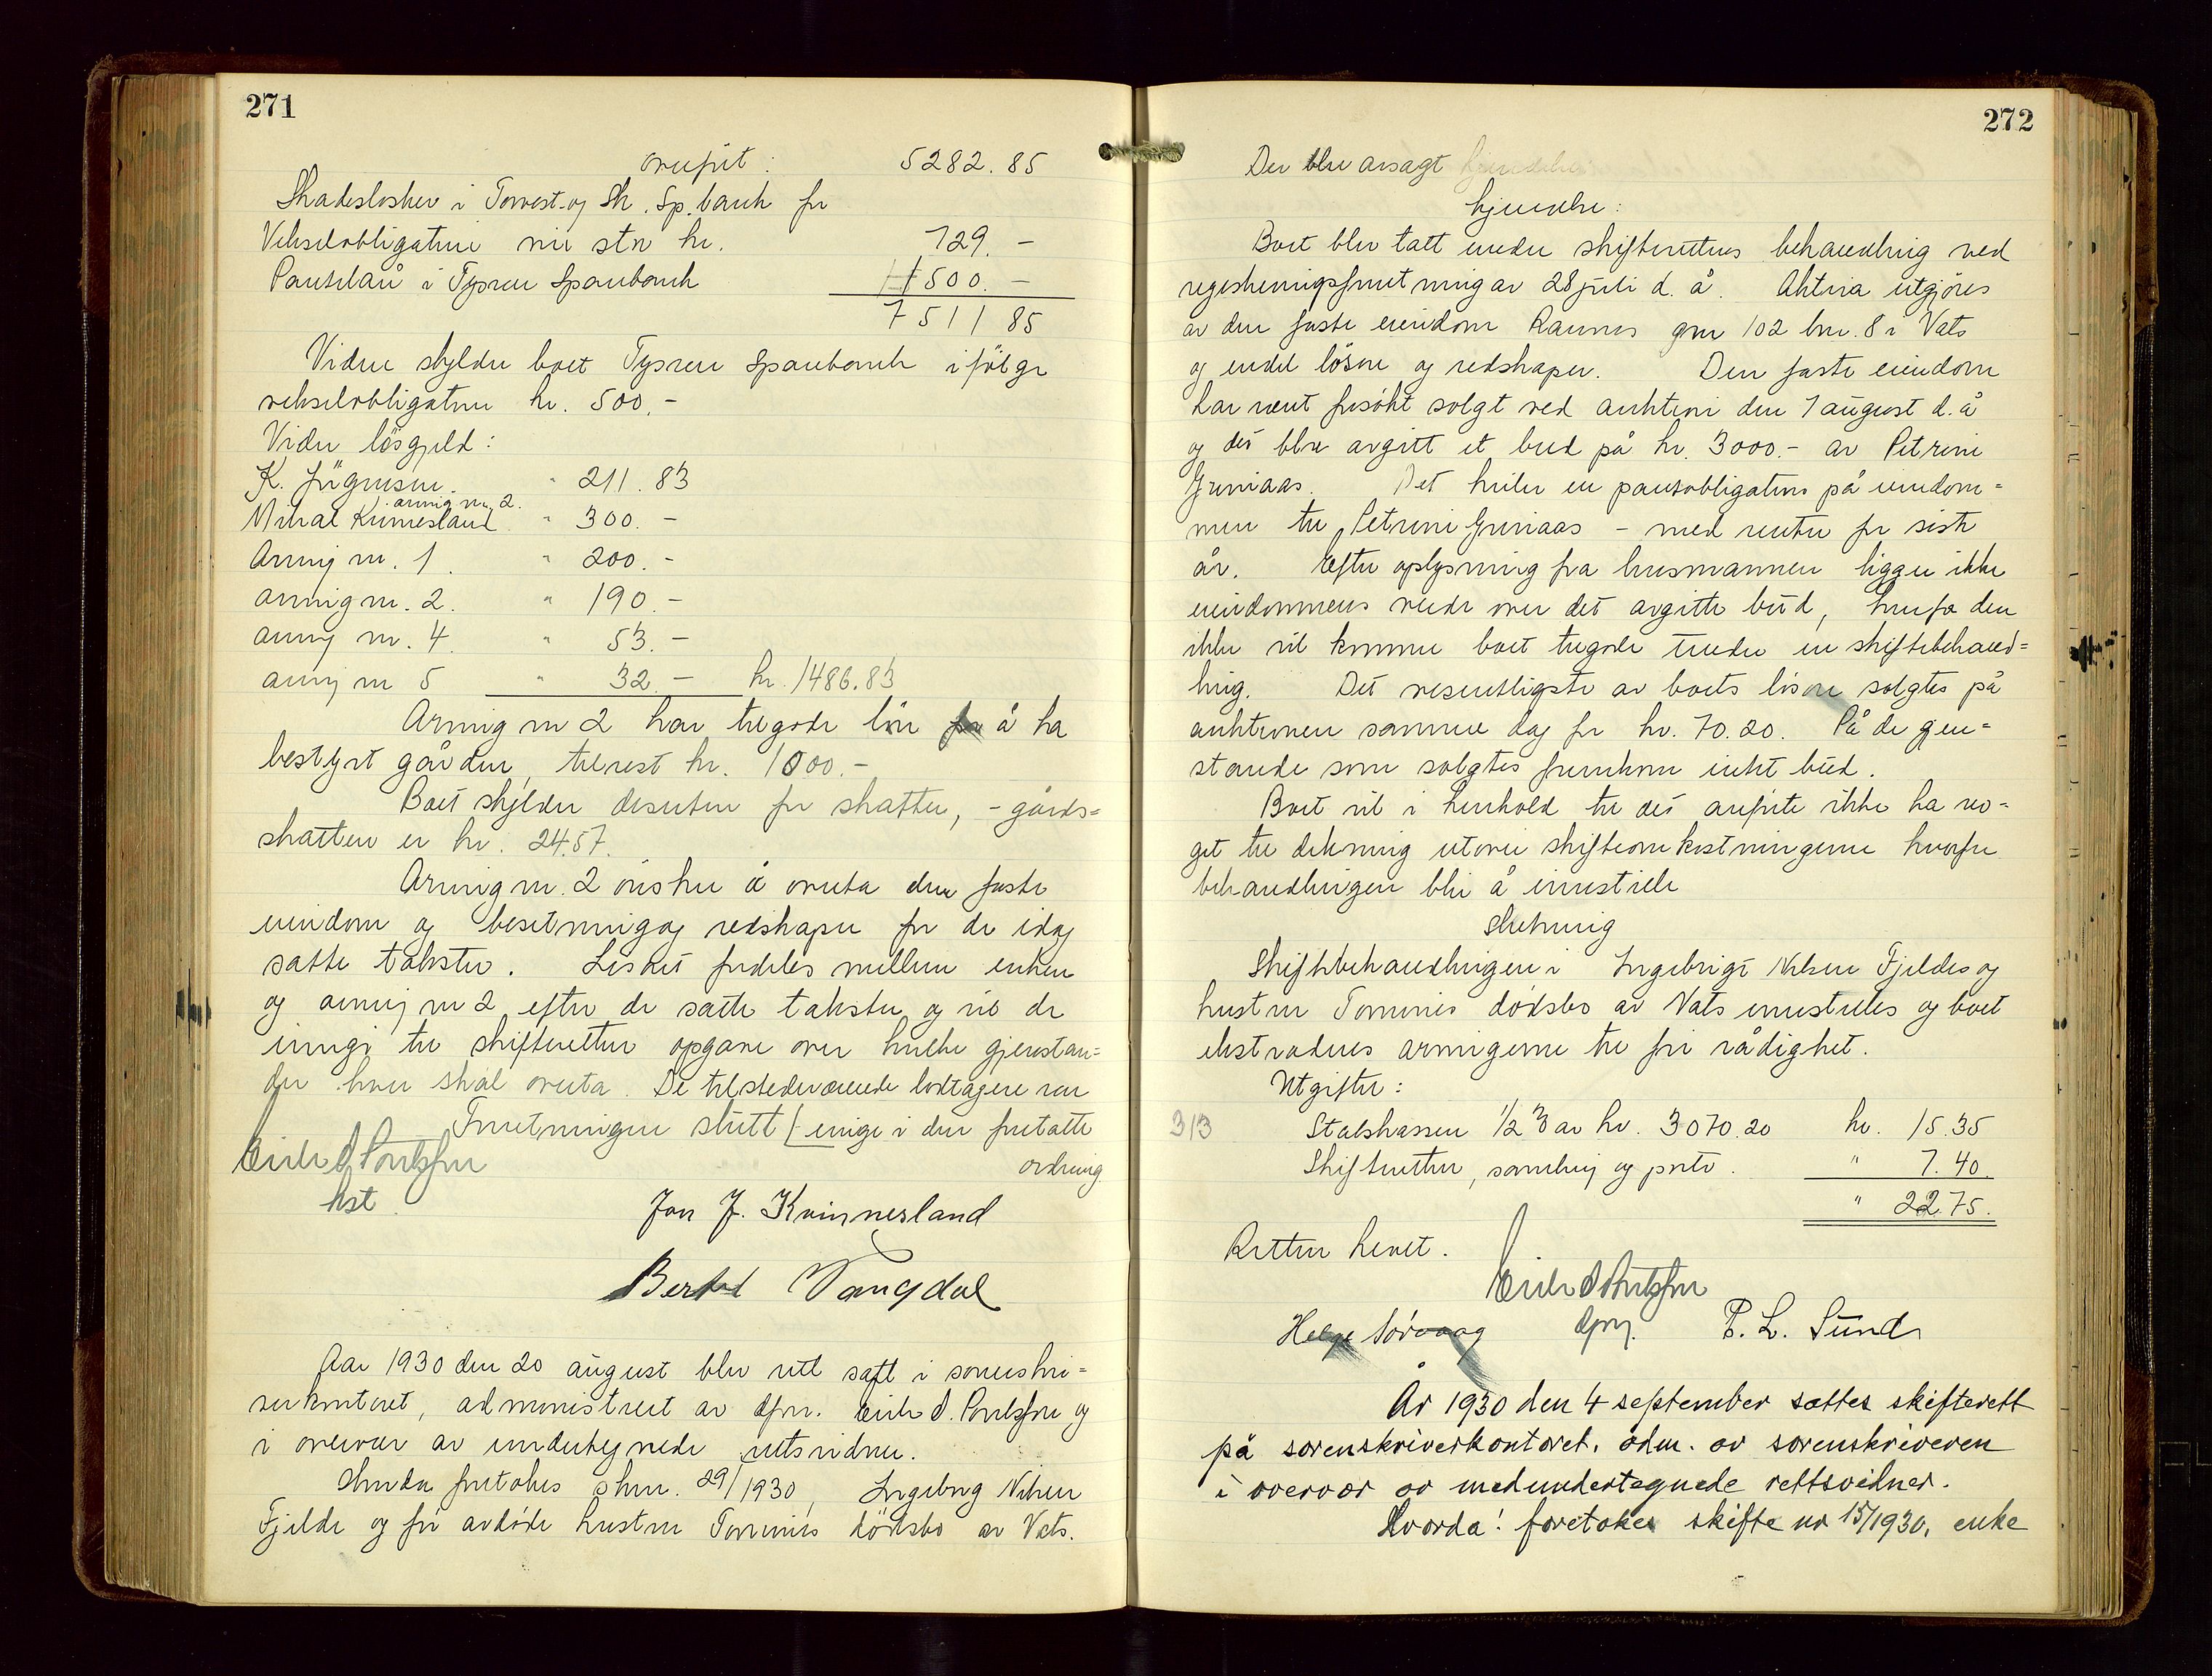 271
overført: 5282.85
Skadesløsbrev i Torvest. og Sk. Sp.bank for
Vekselobligation nu stor kr. 729.-
Pantelån i Tysvær Sparebank 1500.-
7511 85
Videre skylder boet Tysvær Sparebank ifölge
vekselobligation kr. 500.-
Videre lösgjeld:
K. Jörgensen " 211.83
arving nr. 2.
Mikal Kvinnesland " 300.-
Arving nr. 1. " 200.-
arving nr. 2. " 190.-
arving nr. 4. " 53.-
arving nr 5 " 32.- kr. 1486.83
Arving nr 2 har tilgode lön for å ha
bestyrt gården, tilrest kr. 1000.-
Boet skylder desuten for skatter, - gårds=
skatten er kr. 24.57.
Arving nr. 2 önsker å overta den faste
eiendom og besetning og redskaper for de idag
satte takster. Lösöret fordeles mellem enken
og arving nr 2 efter de satte takster og vil de
inngi til skifteretten opgave over hvilke gjenstan=
der hver skal overta. De tilstedeværende lodtagere var
Forretningen slutt [- enige i den foretatte
ordning
Eirik D. Poulsson
kst.
Jon J. Kvinnesland
Bertel Vangdal
Aar 1930 den 20 august blev rett satt i sorenskri=
verkontoret, administrert av dfm. Eirik D. Poulsson og
i overvær av undertegnede rettsvidner.
Hvorda foretokes skn. 29/1930, Ingebrigt Nilsen
Fjelde og for avdøde hustru Tomines dödsbo av Vats.
272
Der blev avsagt kjendelse
kjennelse:
Boet blev tatt under skifterettens behandling ved
registreringsforretning av 28 juli d. å. Aktiva utgjöres
av den faste eiendom Raunes gnr 102 bnr. 8 i Vats
og endel lösöre og redskaper. Den faste eiendom
har vært forsökt solgt ved auktion den 7 august d. å
og det blev avgitt et bud på kr. 3000.- av Petrine
Grinaas. Det hviler en pantobligation på eiendom=
men til Petrine Grinaas - med renter for siste
år. Efter oplysning fra lensmannen ligger ikke
eiendommens verdi over det avgitte bud, hvorfor den
ikke vil komme boet tilgode under en skiftebehand=
ling. Det vesentligste av boets lösöre solgtes på
auktionen samme dag for kr. 70.20. På de gjen=
stande som solgtes fremkom intet bud.
Boet vil i henhold til det anförte ikke ha no=
get til dekning utover skifteomkostningene hvorfor
behandlingen blir å innstille
Slutning
Skiftebehandlingen i Ingebrigt Nilsen Fjeldes og
hustru Tomines dödsbo av Vats innstilles og boet
ekstraderes arvingene til fri rådighet.
Utgifter:
313 Statskassen 1/2 % av kr. 3070.20 kr. 15.35
Skifteretten, samling og porto. " 7.40
" 22.75.
Retten hevet.
Eirik D Poulsson
dfm.
Helge Sørvaag P. L. Sund
År 1930 den 4 september sattes skifterett
på sorenskriverkontoret. adm. av sorenskriveren
i overvær av medundertegnede rettsvidner.
Hvorda! foretokes skifte nr 15/1930, enke